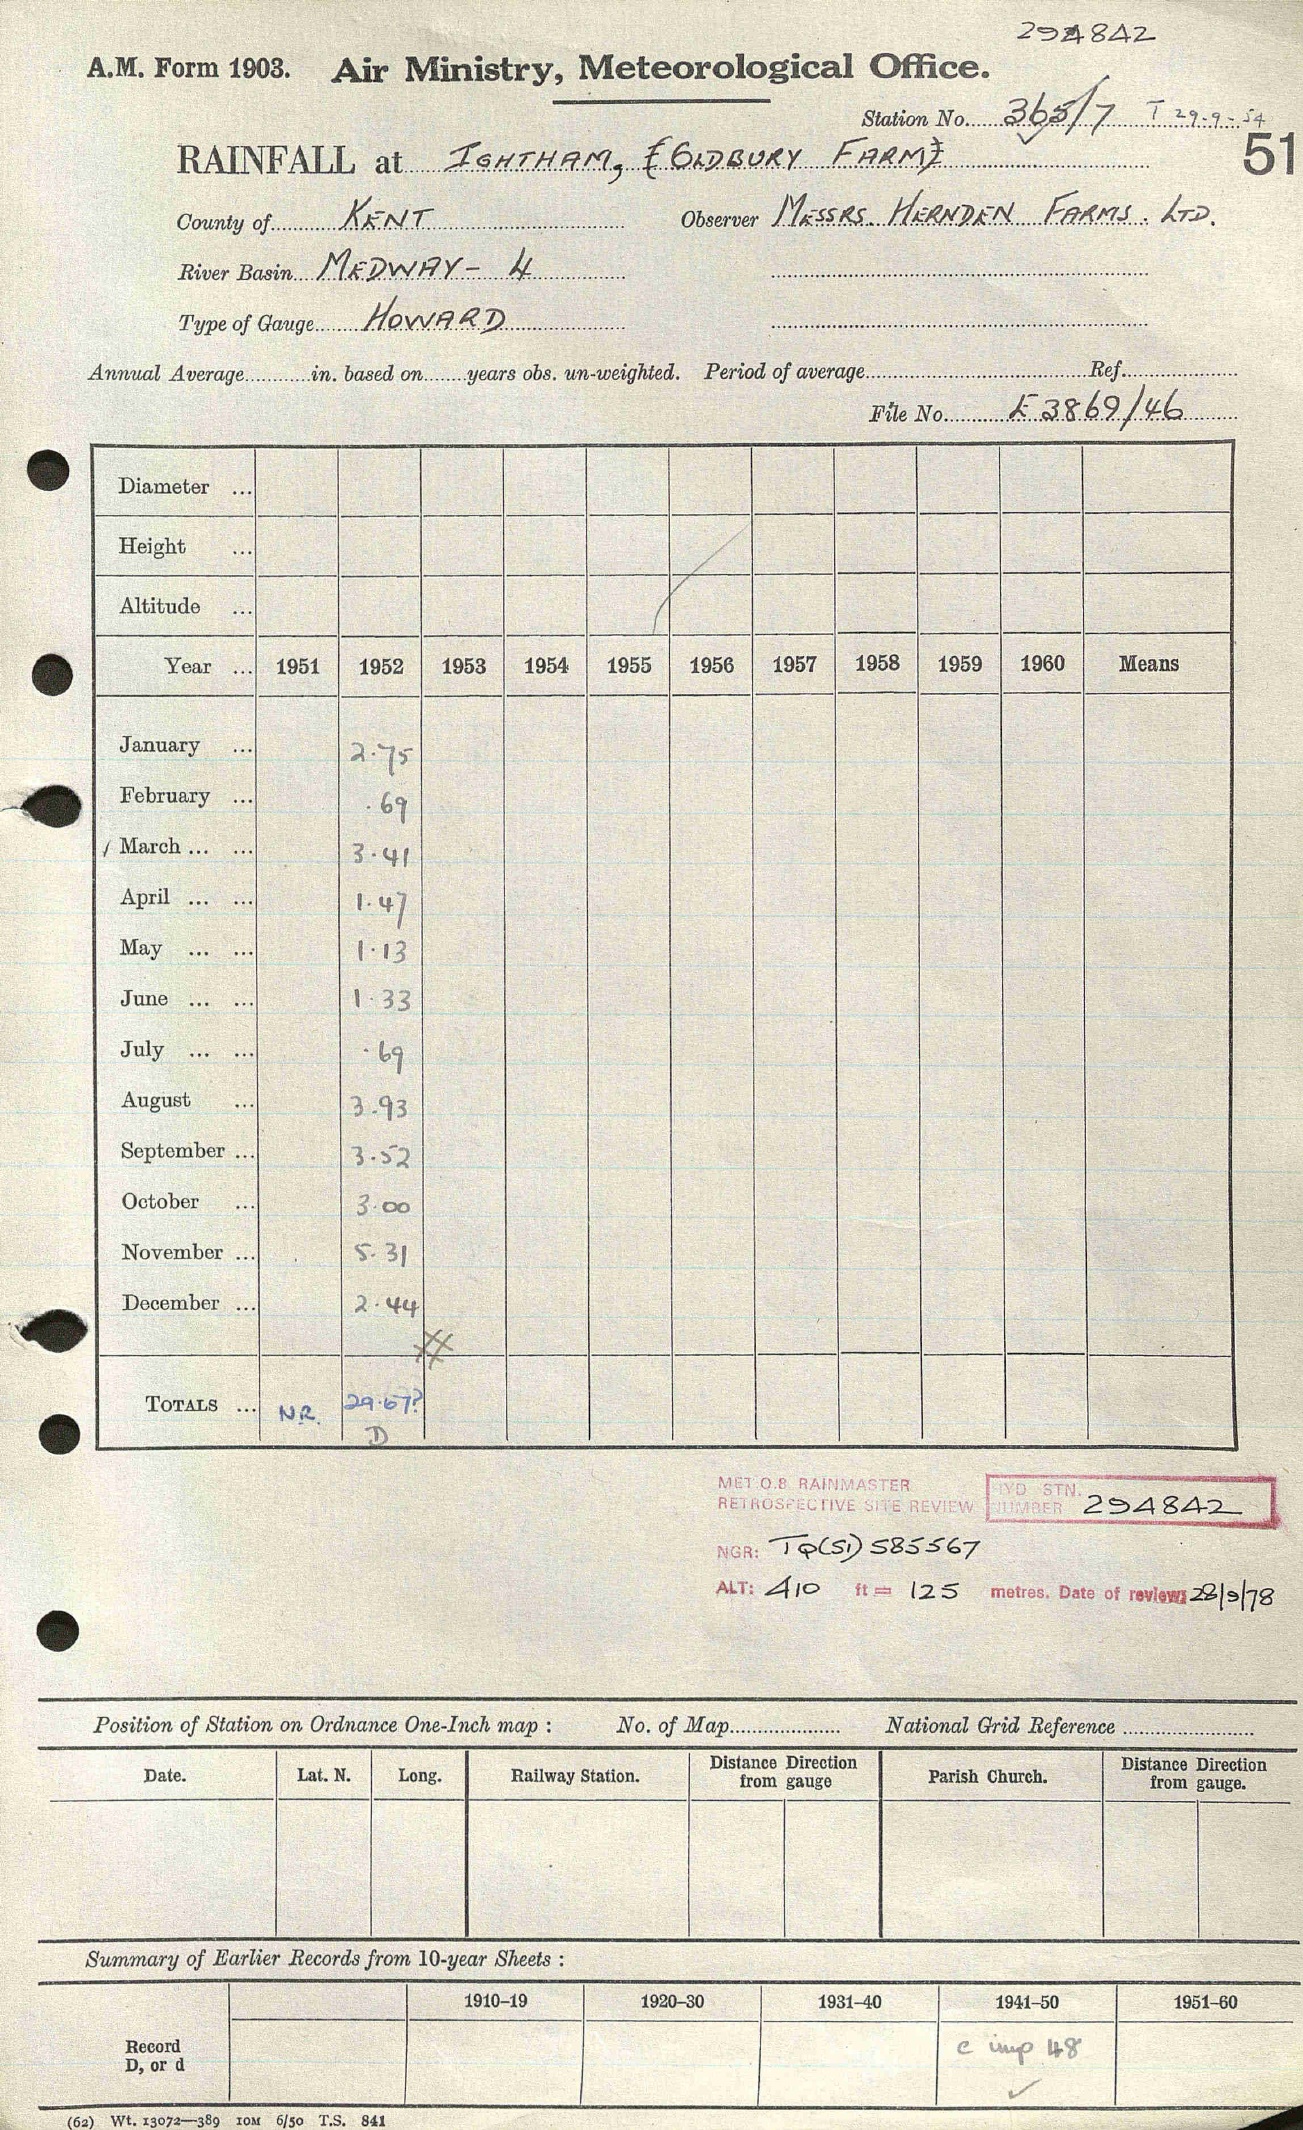 294842
A.M. Form 1903. Air Ministry, Meteorological Office.
Station No. 365/7 T 29-9-54
51
RAINFALL at IGHTHAM, [OLDBURY FARM]
County of KENT Observer MESSRS. HERNDEN FARMS. LTD.
River Basin MEDWAY - 4
Type of Gauge HOWARD
Annual Average in. based on years obs. un-weighted. Period of average Ref.
File No. E3869/46
Diameter ...
Height ...
Altitude ...
Year ... 1951 1952 1953 1954 1955 1956 1957 1958 1959 1960 Means
January ... 2.75
February ... .69
/ March ... ... 3.41
April ... ... 1.47
May ... ... 1.13
June ... ... 1.33
July ... ... .69
August ... 3.93
September ... 3.52
October ... 3.00
November ... 5.31
December ... 2.44
#
TOTALS ... N.R. 29.67?
D
MET O.8 RAINMASTER
RETROSPECTIVE SITE REVIEW
HYD STN. NUMBER 294842
NGR: TQ(51) 585567
ALT: 410 ft = 125 metres. Date of review: 28/9/78
Position of Station on Ordnance One-Inch map : No. of Map National Grid Reference
Date. Lat. N. Long. Railway Station. Distance Direction from gauge Parish Church. Distance Direction from gauge.
Summary of Earlier Records from 10-year Sheets :
1910–19 1920–30 1931–40 1941–50 1951–60
Record
D, or d
c imp 48
(62) Wt. 13072—389 10M 6/50 T.S. 841